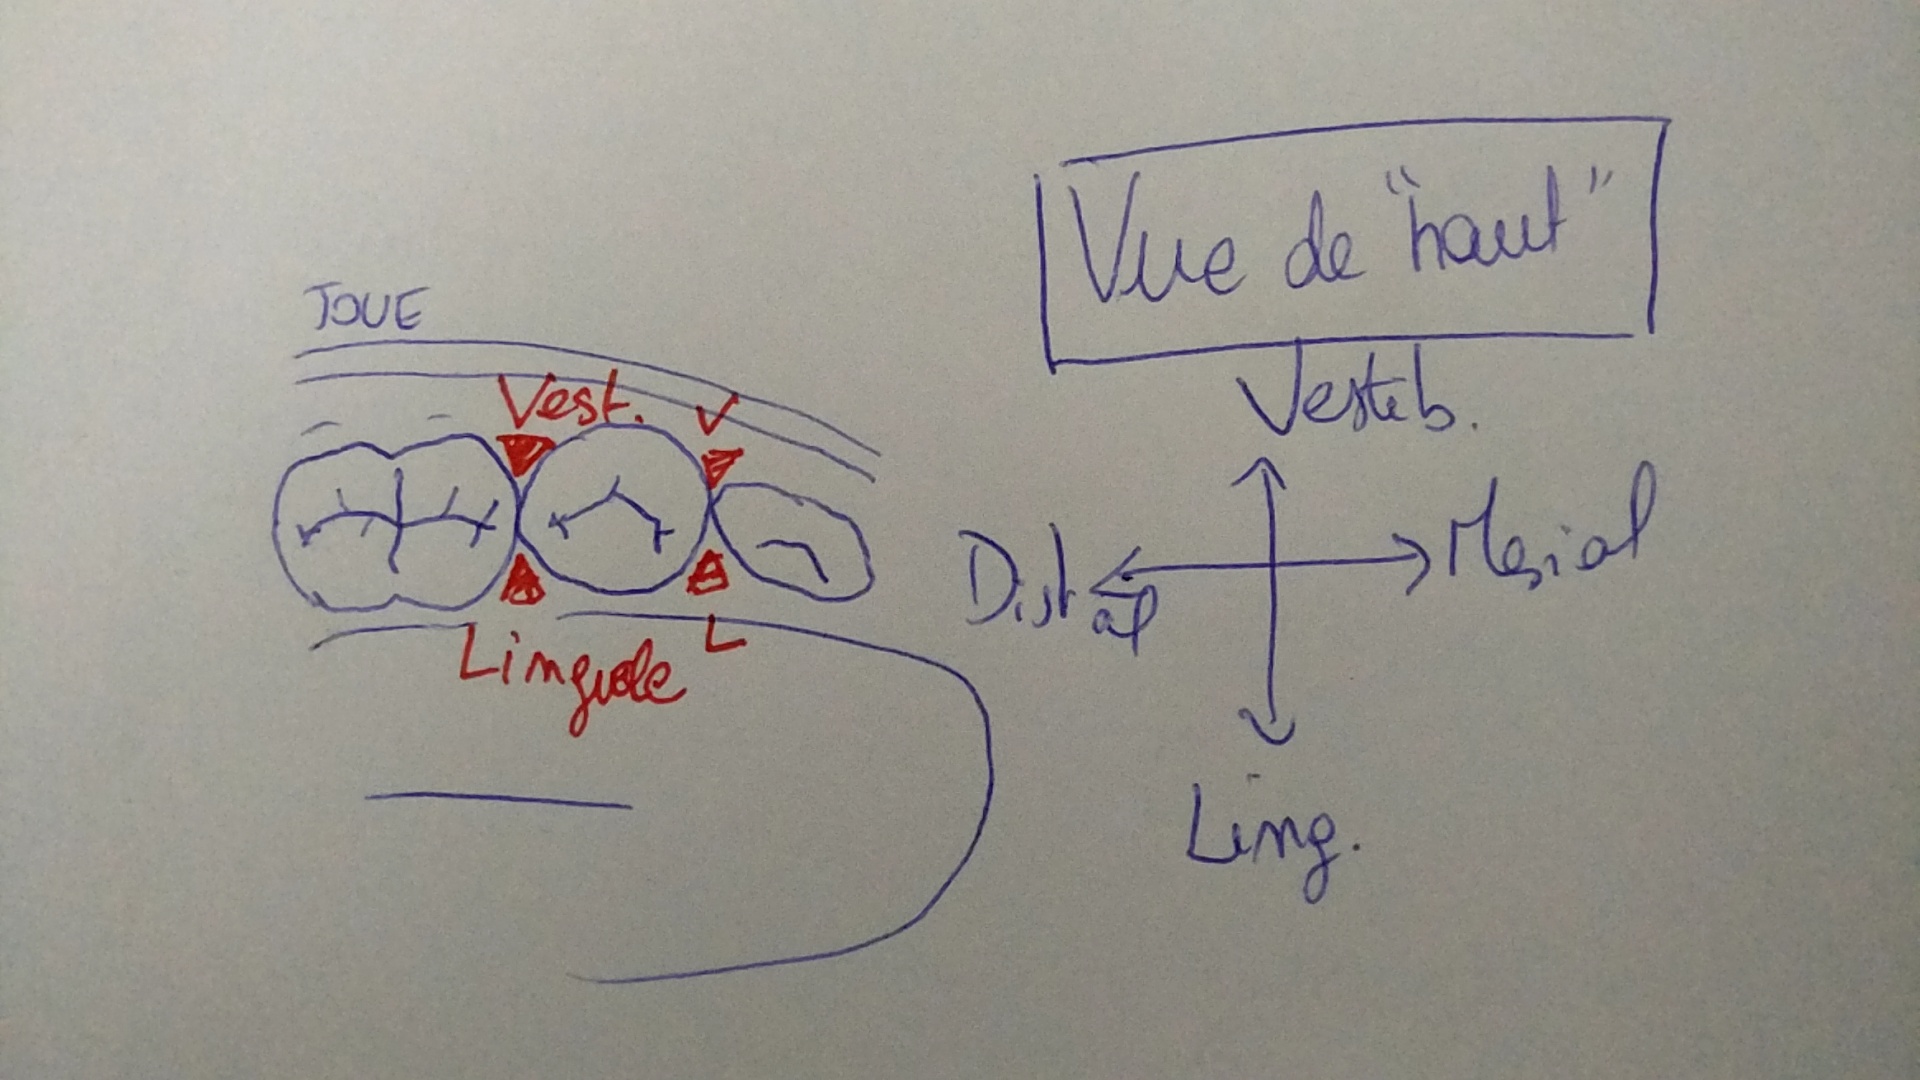 Vue de "haut"
JOUE
Vest. V
Vestib.
Distal
Mesial
Linguale L
Ling.